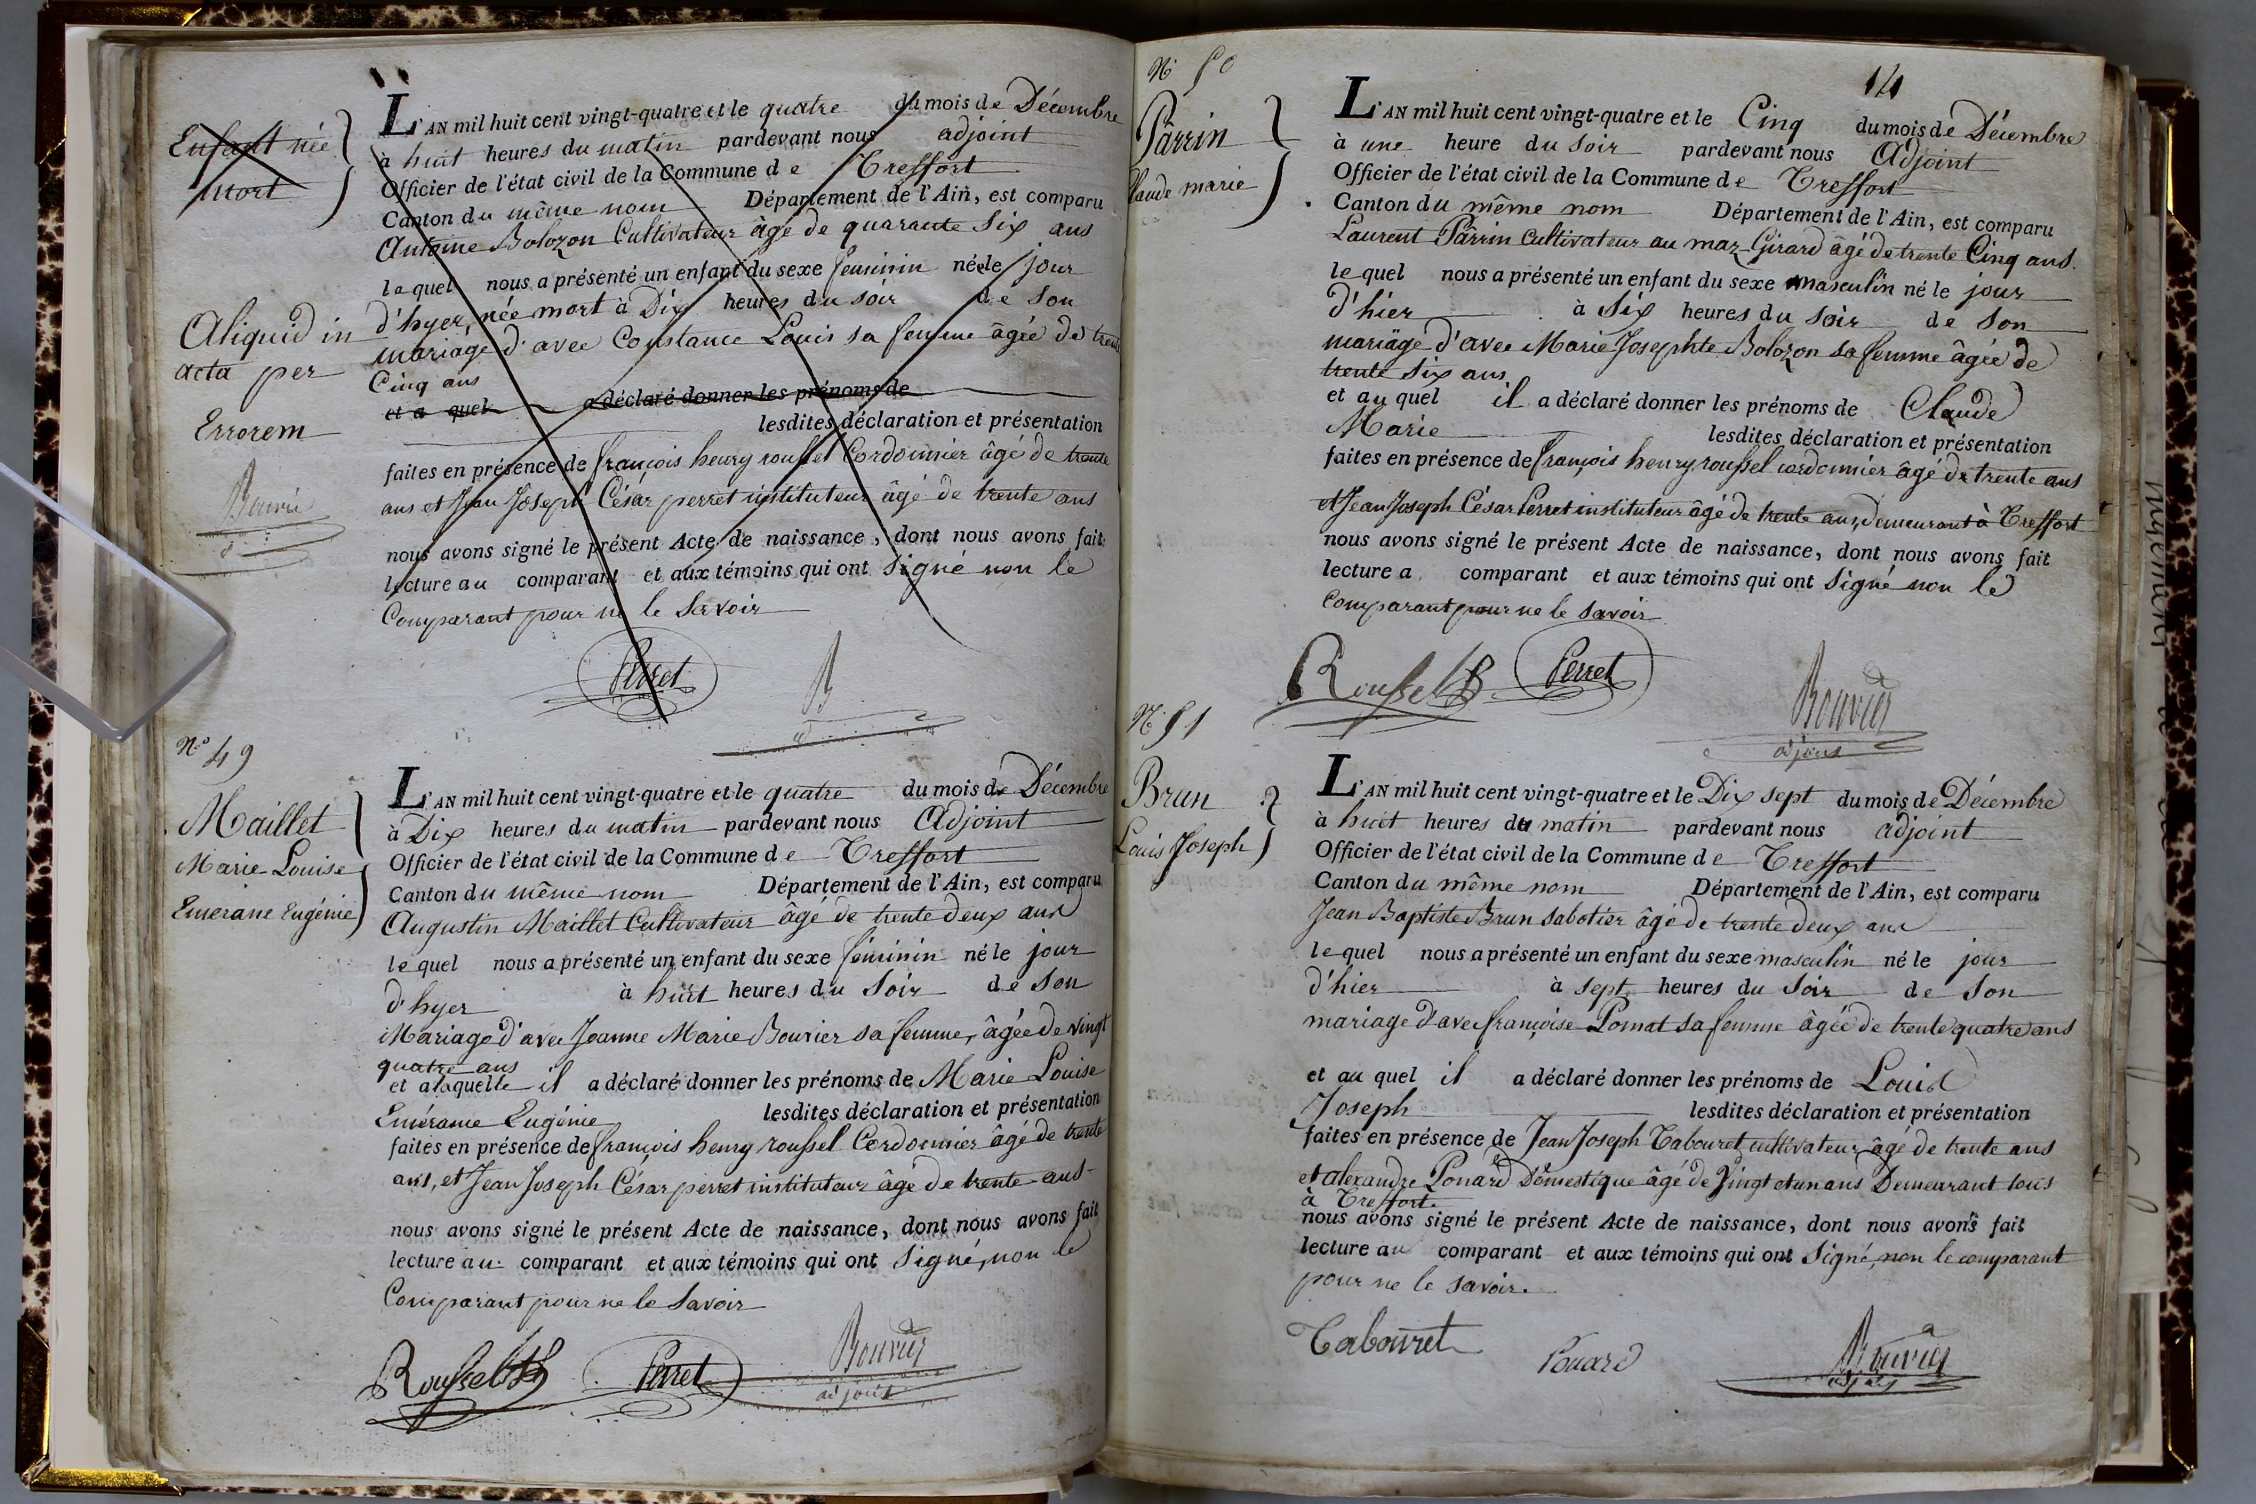 Enfant née
mort
L'AN mil huit cent vingt-quatre et le quatre du mois de Décembre
à huit heures du matin pardevant nous adjoint
Officier de l'état civil de la Commune de Treffort
Canton du même nom Département de l'Ain, est comparu
Antoine Bolozon Cultivateur âgé de quarante Six ans
lequel nous a présenté un enfant du sexe feminin née le jour
d'hyer, née mort à Dix heures du soir de son
mariage d'avec Constance Louis sa femme âgée de trente
Cinq ans
et a quel a déclaré donner les prénoms de
lesdites déclaration et présentation
faites en présence de françois henry roussel Cordonnier âgé de trente
ans et Jean Joseph César perret instituteur âgé de trente ans
nous avons signé le présent Acte de naissance, dont nous avons fait
lecture au comparant et aux témoins qui ont Signé non le
Comparant pour ne le Savoir
Aliquid in
acta per
Errorem
Bouvier
Perret
B
N° 49
Maillet
Marie Louise
Emerane Eugénie
L'AN mil huit cent vingt-quatre et le quatre du mois de Décembre
à Dix heures du matin pardevant nous Adjoint
Officier de l'état civil de la Commune de Treffort
Canton du même nom Département de l'Ain, est comparu
Augustin Maillet Cultivateur âgé de trente deux ans
lequel nous a présenté un enfant du sexe féminin né le jour
d'hyer à huit heures du Soir de son
Mariage d'avec Jeanne Marie Bouvier sa femme, âgée de vingt
quatre ans
et a laquelle il a déclaré donner les prénoms de Marie Louise
Emérane Eugénie lesdites déclaration et présentation
faites en présence de françois henry roussel Cordonnier âgé de trente
ans, et Jean Joseph César perret instituteur âgé de trente ans
nous avons signé le présent Acte de naissance, dont nous avons fait
lecture au comparant et aux témoins qui ont Signé, non le
Comparant pour ne le Savoir
Roussel Perret Bouvier
adjoint
14
N° 50
Pârrin
Claude marie
L'AN mil huit cent vingt-quatre et le Cinq du mois de Décembre
à une heure du Soir pardevant nous Adjoint
Officier de l'état civil de la Commune de Treffort
Canton du même nom Département de l'Ain, est comparu
Laurent Pârrin Cultivateur au maz Girard âgé de trente Cinq ans.
lequel nous a présenté un enfant du sexe masculin né le jour
d'hier à Six heures du Soir de Son
mariage d'avec Marie Josephte Bolozon sa femme âgée de
trente Six ans
et au quel il a déclaré donner les prénoms de Claude
Marie lesdites déclaration et présentation
faites en présence de françois henry roussel cordonnier âgé de trente ans
et Jean Joseph César Perret instituteur âgé de trente ans, demeurant à Treffort
nous avons signé le présent Acte de naissance, dont nous avons fait
lecture a comparant et aux témoins qui ont Signé non le
Comparant pour ne le Savoir
Roussel Perret Bouvier
adjoint
N° 51
Brun
Louis Joseph
L'AN mil huit cent vingt-quatre et le Dix sept du mois de Décembre
à huit heures du matin pardevant nous adjoint
Officier de l'état civil de la Commune de Treffort
Canton du même nom Département de l'Ain, est comparu
Jean Baptiste Brun Sabotier âgé de trente deux ans
lequel nous a présenté un enfant du sexe masculin né le jour
d'hier à sept heures du Soir de Son
mariage d'avec françoise Pomat sa femme âgée de trente quatre ans
et au quel il a déclaré donner les prénoms de Louis
Joseph lesdites déclaration et présentation
faites en présence de Jean Joseph Tabouret cultivateur âgé de trente ans
et alexandre Ponard Domestique âgé de Vingt et un ans Demeurant tous
à Treffort.
nous avons signé le présent Acte de naissance, dont nous avons fait
lecture au comparant et aux témoins qui ont Signé, non le comparant
pour ne le savoir.
Tabouret Ponard Bouvier
adjoint